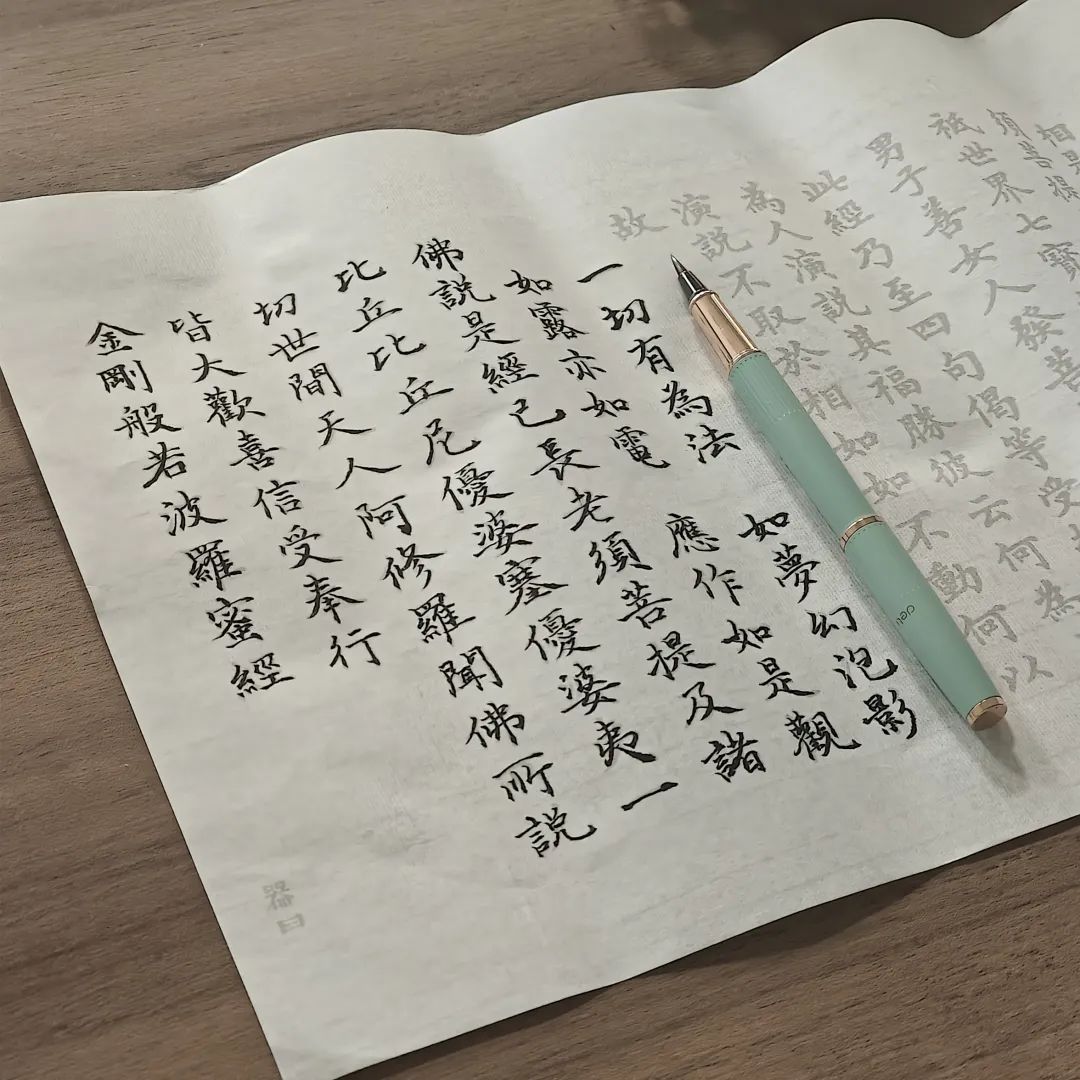 相是
須菩提
祇世界七寶
男子善女人發菩
此經乃至四句偈等受
為人演說其福勝彼云何為
演說不取於相如如不動何以
故
一切有為法 如夢幻泡影
如露亦如電 應作如是觀
佛說是經已長老須菩提及諸
比丘比丘尼優婆塞優婆夷一
切世間天人阿修羅聞佛所說
皆大歡喜信受奉行
金剛般若波羅蜜經
deli